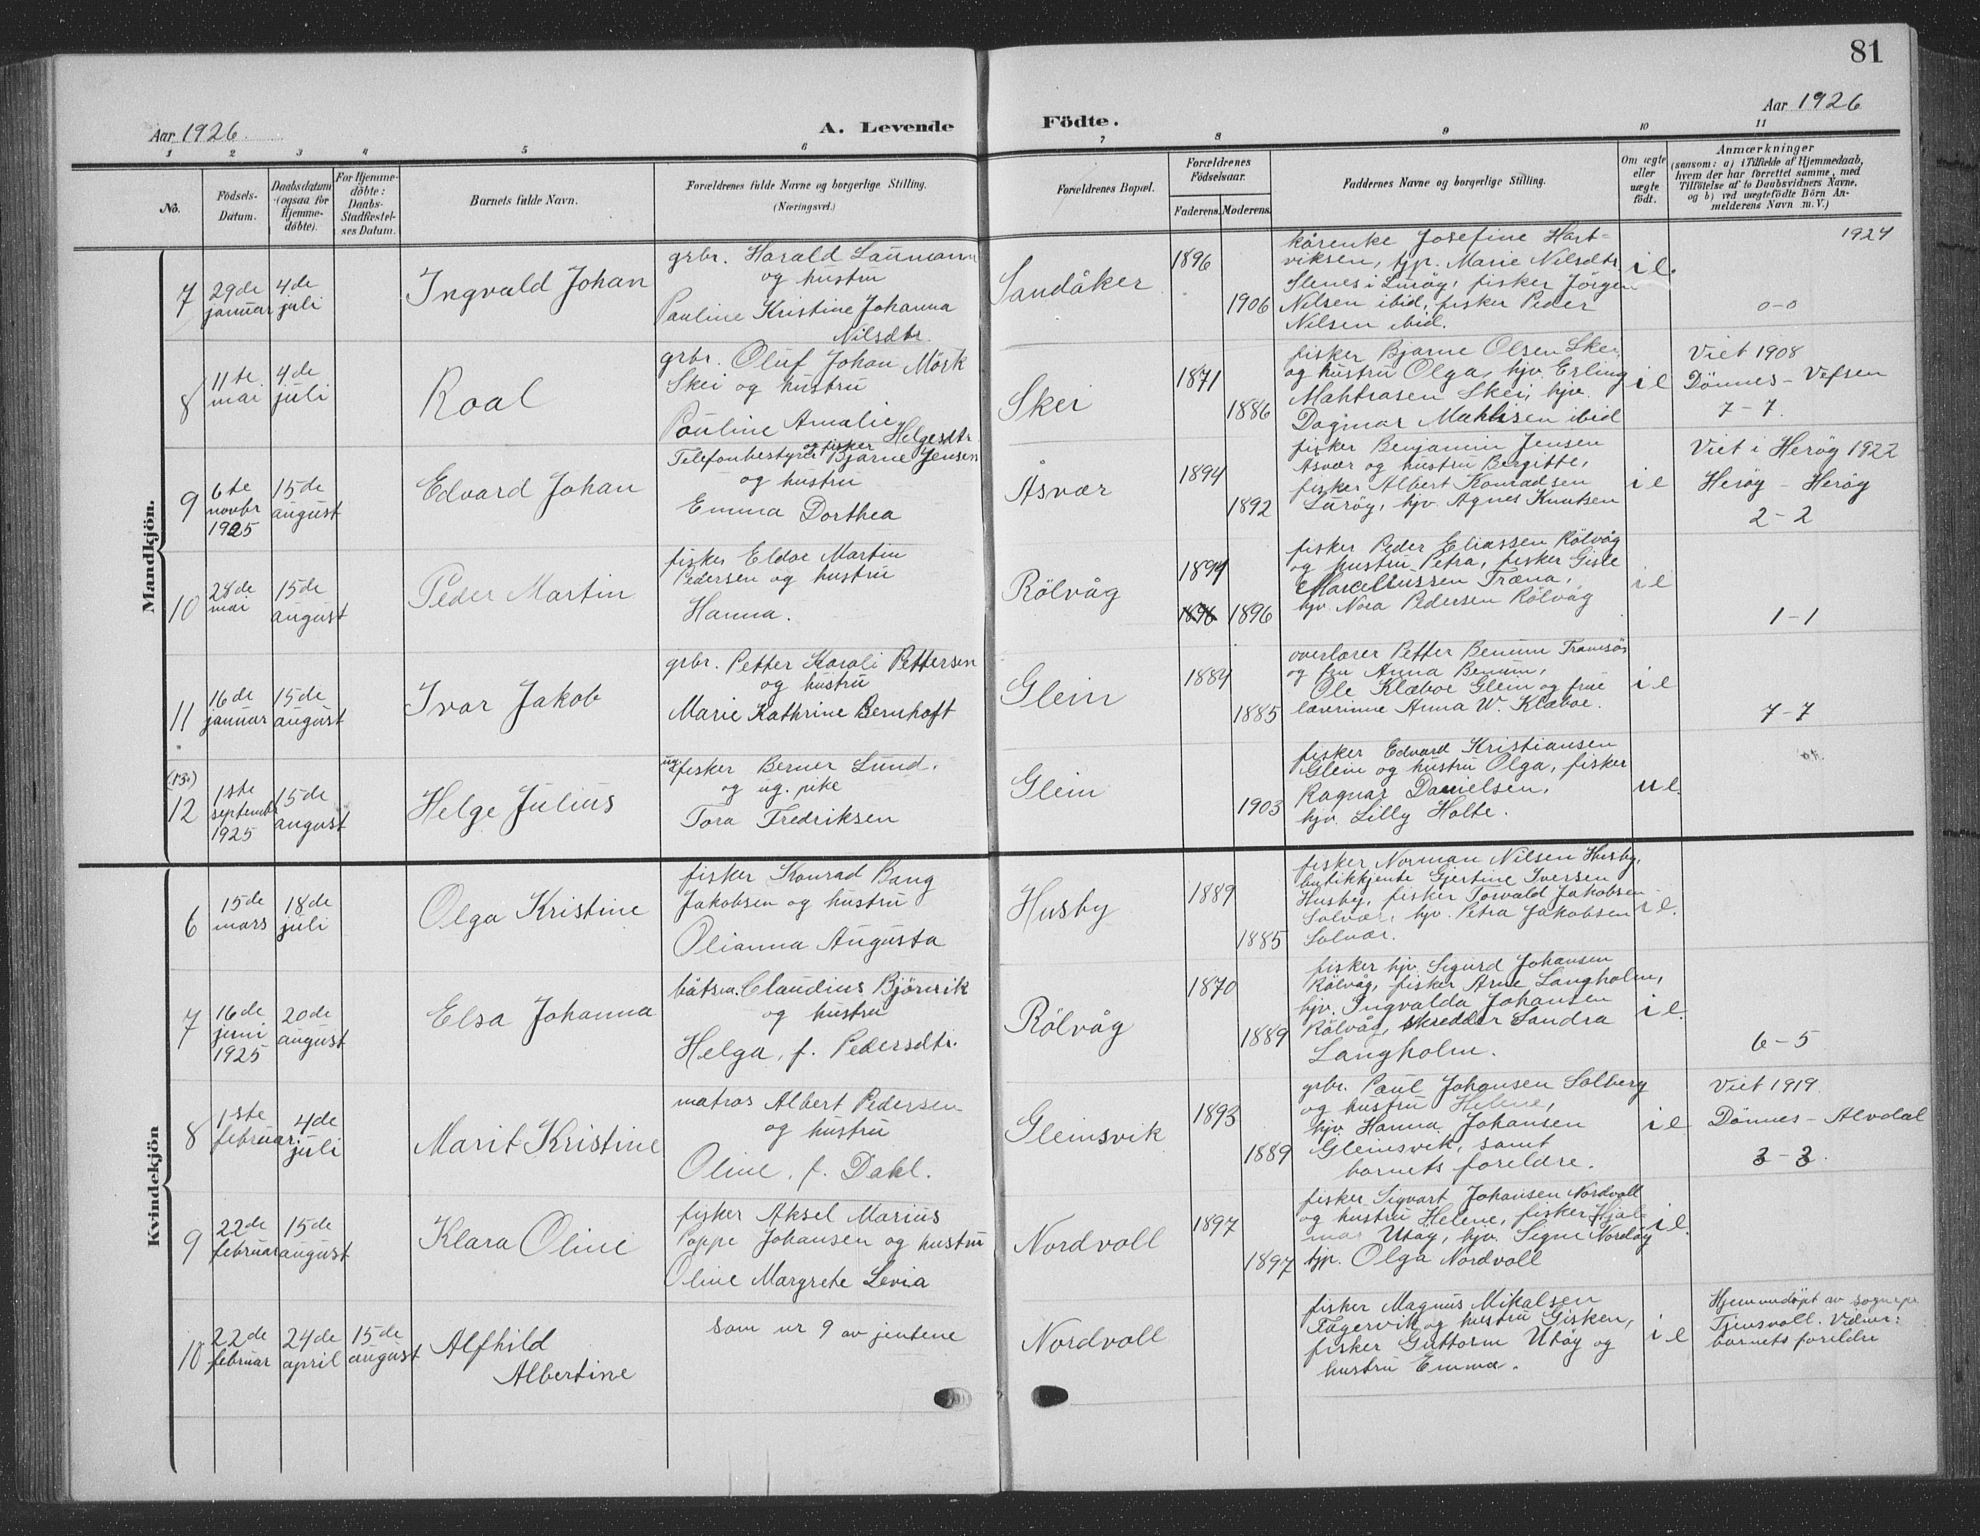 81
Aar 1926
A. Levende
Födte.
Aar 1926
1 2 3 4 5 6 7 8 9 10 11
No.
Födsels-
Datum.
Daabsdatum
(ogsaa for
Hjemme-
døbte).
For Hjemme-
døbte:
Daabs-
Stadfæstel-
ses Datum.
Barnets fulde Navn.
Forældrenes fulde Navne og borgerlige Stilling.
(Næringsvei.)
Forældrenes Bopæl.
Forældrenes
Födselsaar.
Faderens. Moderens.
Faddernes Navne og borgerlige Stilling.
Om ægte
eller
uægte
født.
Anmærkninger
(saasom: a) i Tilfælde af Hjemmedaab,
hvem der har forrettet samme, med
Tilføielse af to Daabsvidners Navne,
og b) ved uægtefödte Börn An-
melderens Navn m. V.)
Mandkjön.
7
29de
januar
4de
juli
Ingvald Johan
grbr. Harald Laumann
og hustru
Pauline Kristine Johanna
Nilsdtr.
Sandåker
1896
1906
kårenke Josefine Hart-
viksen, tjp. Marie Nilsdtr.
Slenes i Luröy, fisker Jörgen
Nilsen ibid, fisker Peder
Nilsen ibid.
i e.
1924
0-0
8
11te
mai
4de
juli
Roal
grbr. Oluf Johan Mörk
Skei og hustru
Pauline Amalie
Helgesdtr.
Skei
1871
1886
fisker Bjarne Olsen Skei
og hustru Olga, hjv. Erling
Mahtiasen Skei, hjv.
Dagmar Mathisen ibid
i e
Viet 1908
Dönnes - Vefsen
7-7.
9
6te
novbr
1925
15de
august
Edvard Johan
og fisker
Telefonbestyrer Bjarne Jensen
og hustru
Emma Dorthea
Åsvær
1894
1892
fisker Benjamin Jensen
Åsvær og hustru Bergitte,
fisker Albert Konradsen
Luröy, hjv. Agnes Knutsen
i e
Viet i Heröy 1922
Heröy - Heröy
2-2
10
28de
mai
15de
august
Peder Martin
fisker Eldor Martin
Pedersen og hustru
Hanna.
Rölvåg
1894
1896 1896
fisker Peder Eliassen Rölvåg
og hustru Petra, fisker Gisle
Marcelliussen Træna,
hjv. Nora Pedersen Rölvåg
i e
1-1
11
16de
januar
15de
august
Ivar Jakob
grbr. Petter Karoli Pettersen
og hustru
Marie Kathrine Bernhoft
Glein
1884
1885
overlærer Petter Benum Tromsö
og fru Anna Benum,
Ole Klæboe Glein og frue
lærerinne Anna W. Klæboe.
i e
7-7
(13.)
12
1ste
septembr
1925
15de
august
Helge Julius
ug. fisker Berner Lund.
og ug. pike
Tora Fredriksen
Glein
1903
fisker Edvard Kristiansen
Glein og hustru Olga, fisker
Ragnar Danielsen,
hjv. Lilly Holte.
u e.
Kvindekjön
6
15de
mars
18de
juli
Olga Kristine
fisker Konrad Bang
Jakobsen og hustru
Olianna Augusta
Husby
1889
1885
fisker Norman Nilsen Husby,
butikkjente Gjertine Iversen
Husby, fisker Torvald Jakobsen
Solvær, hjv. Petra Jakobsen
Solvær.
i e.
7
16de
juni
1925
20de
august
Elsa Johanna
båtsm. Claudius Björnvik
og hustru
Helga, f. Pedersdtr.
Rölvåg
1870
1889
fisker hjv. Sigurd Johansen
Rölvåg, fisker Arne Langholm,
hjv. Ingvalda Johansen
Rölvåg, skredder Sandra
Langholm.
i e.
6-5
8
1ste
februar
4de
juli
Marit Kristine
matros Albert Pedersen
og hustru
Oline, f. Dahl.
Gleinsvik
1893
1889
grbr. Paul Johansen Solberg
og hustru Helene,
hjv. Hanna Johansen
Gleinsvik, samt
barnets foreldre.
i e
Viet 1919
Dönnes - Alvdal
3-3.
9
22de
februar
15de
august
Klara Oline
fisker Aksel Marius
Poppe Johansen og hustru
Oline Margrete Levia
Nordvoll
1897
1897
fisker Sigvart Johansen Nordvoll
og hustru Helene, fisker Hjal-
mar Utöy, hjv. Signe Nordöy
tjp. Olga Nordvoll
i e.
10
22de
februar
24de
april
15de
august
Alfhild
Albertine
som nr 9 av jentene
Nordvoll
fisker Magnus Mikalsen
Fagervik og hustru Gisken,
fisker Guttorm Utöy og
hustru Emma.
i e
Hjemmedöpt av sognepr
Tjensvoll. Vidner:
barnets foreldre